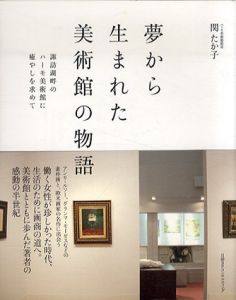 夢から
生まれた
美術館の物語
関たか子
諏訪湖畔の
ハーモ美術館に
癒やしを求めて
働く女性が珍しかった時代、
生活のために画商の道へ。
美術館とともに歩んだ著者の
感動の半世紀